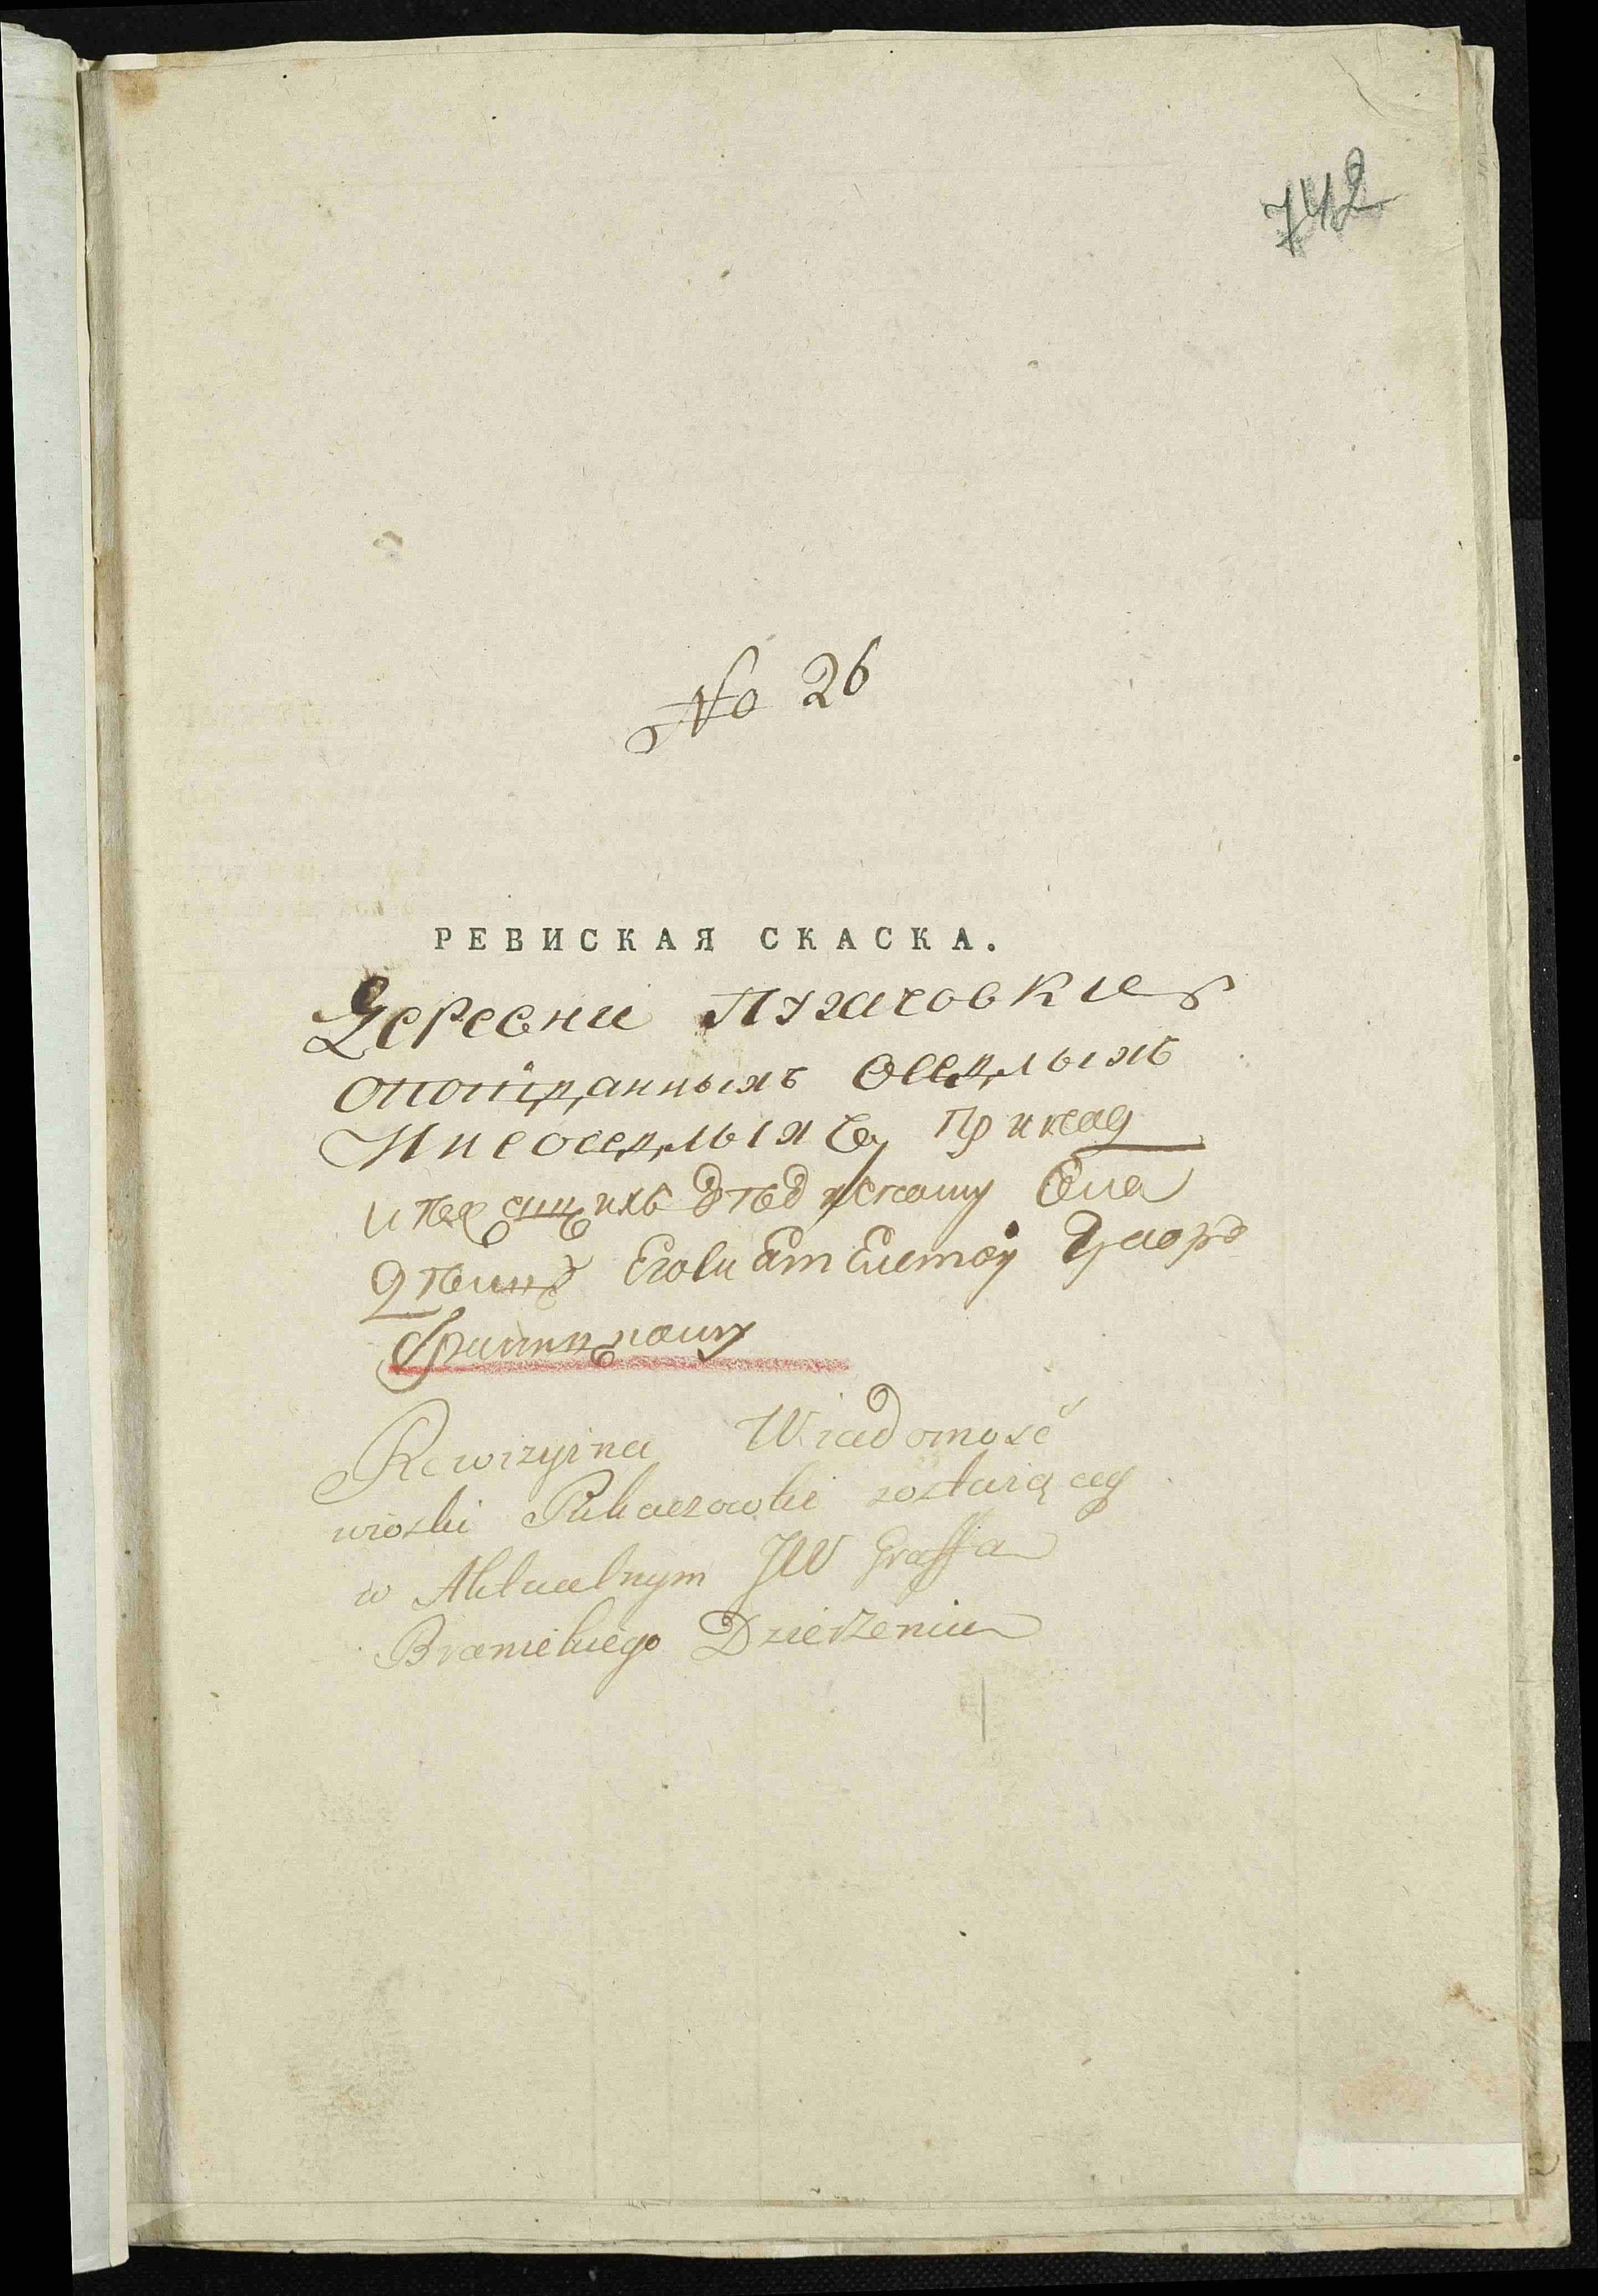 742
No 26
РЕВИСКАЯ СКАСКА.
Деревни Пугачовки
оподданныхъ оседлыхъ
И неоседлыхъ, Принад
Его Сиятелству Графу
Браницкому
Rewizyina Wiadomość
wioski Puhaczowki zostaiącey
w Aktualnym JW Graffa
Branickiego Dzierzeniu